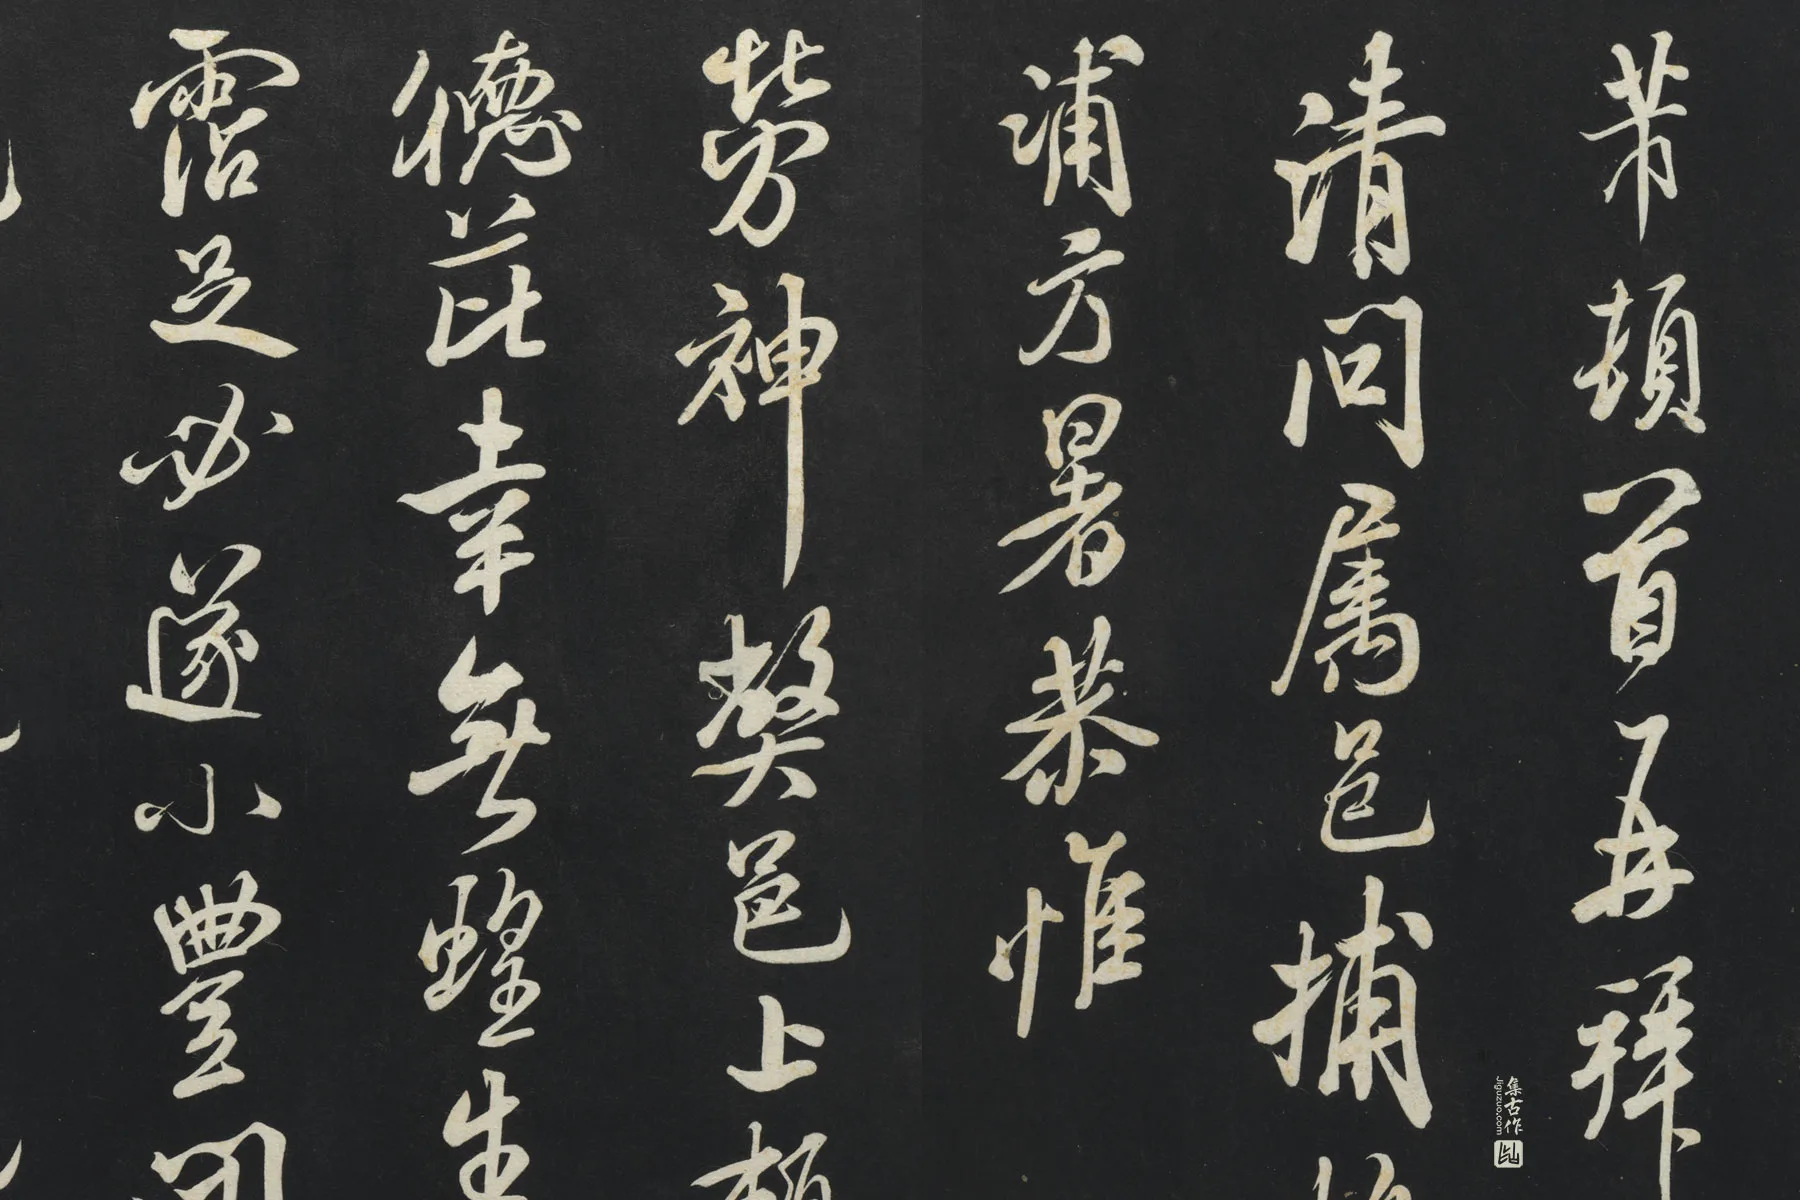 芾頓首再拜
清問属邑捕
浦方暑恭惟
勞神獘邑上
德芘幸無蝗生
霑足必遂小豐
集古作
Jiguzuo.com